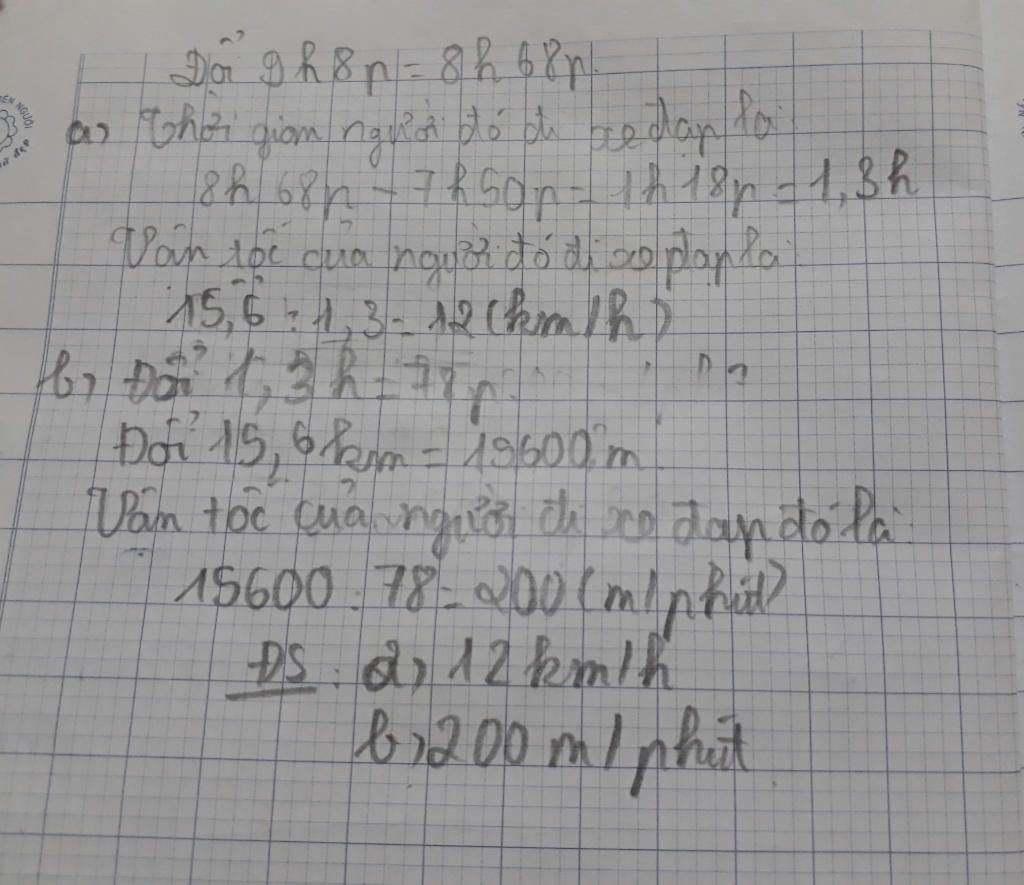 Đổi 9h8p = 8h 68p.
a, Thời gian người đó đi xe đạp là:
8h 68p - 7h50p = 1h 18p = 1,3h
Vận tốc của người đó đi xe đạp là:
15,6 : 1,3 = 12 (km/h)
b, Đổi 1,3h = 78p.
Đổi 15,6km = 15600 m
Vận tốc của người đi xe đạp đó là:
15600 : 78 = 200 (m/phút)
ĐS : a, 12 km/h
b, 200 m/phút